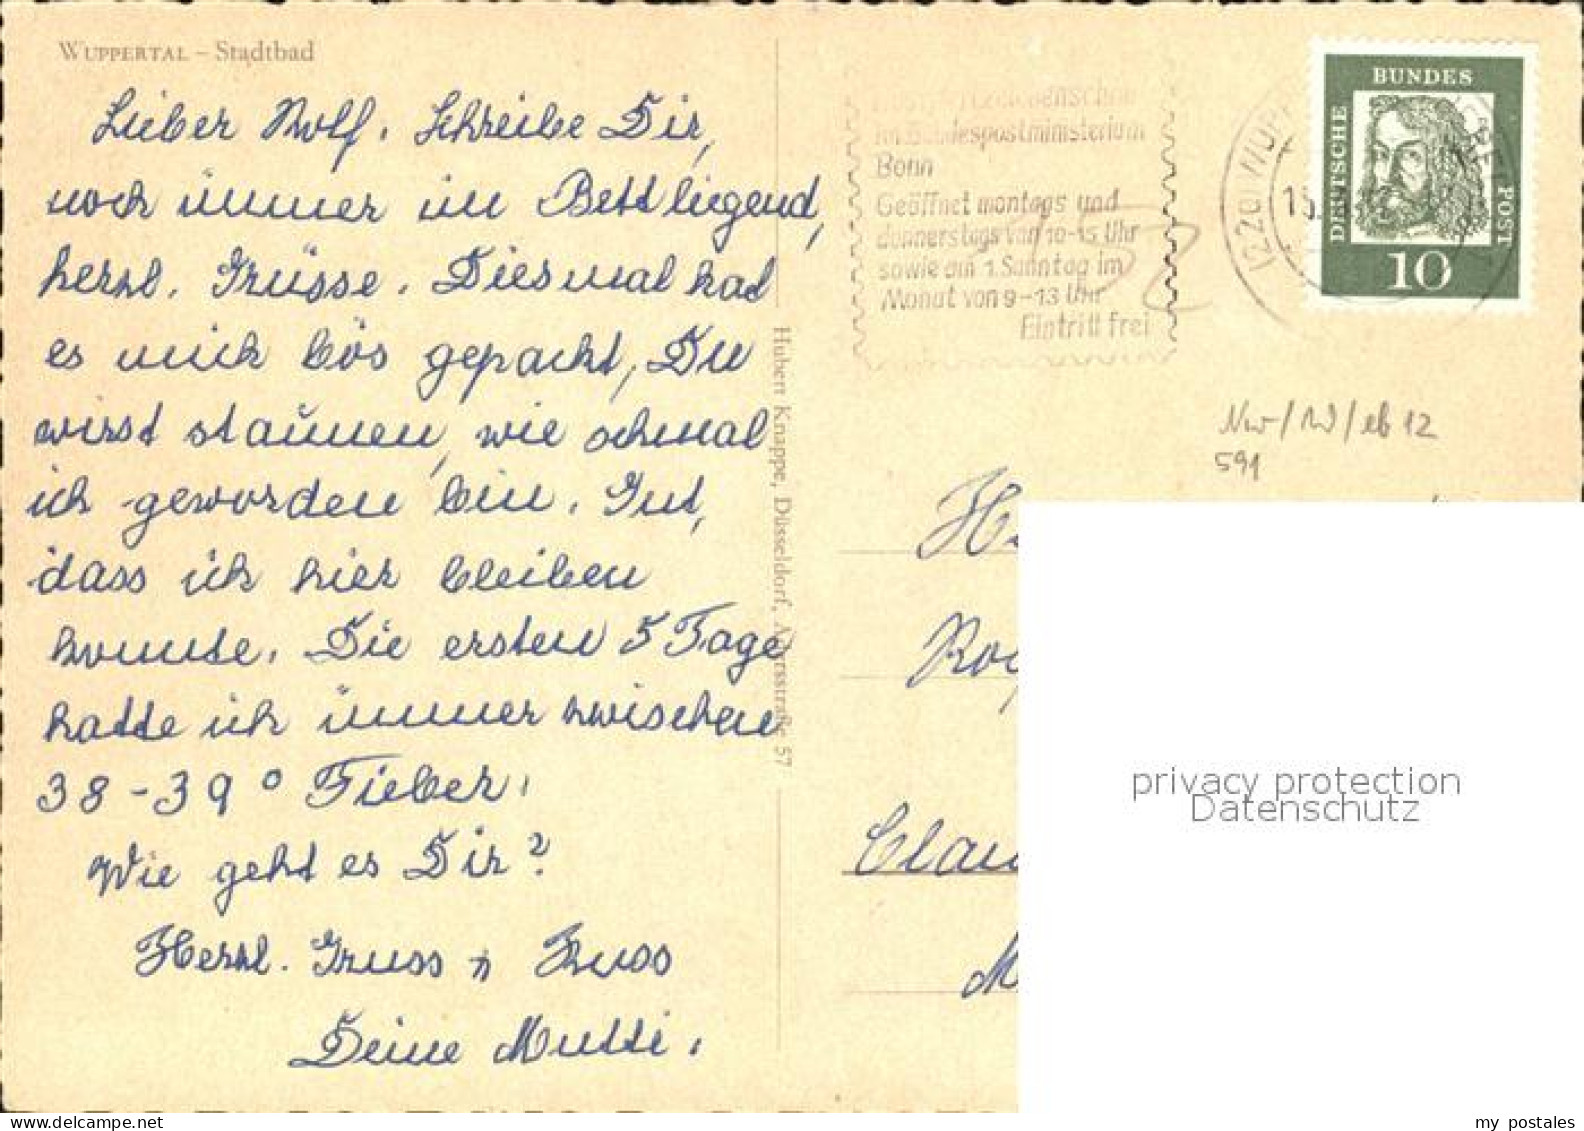 WUPPERTAL – Stadtbad
Lieber Rolf. Schreibe Dir,
noch immer im Bett liegend,
herzl. Grüsse. Diesmal hat
es mich bös gepackt, Du
wirst staunen, wie schmal
ich geworden bin. Gut,
dass ich hier bleiben
konnte. Die ersten 5 Tage
hatte ich immer zwischen
38-39° Fieber.
Wie geht es Dir?
Herzl. Gruss u Kuss
Deine Mutti.
Hubert Knappe, Düsseldorf, 57
im Bundespostministerium
Bonn
Geöffnet montags und
donnerstags von 10-15 Uhr
sowie am 1. Sonntag im
Monat von 9-13 Uhr
Eintritt frei
(22a) WUPP
15
DEUTSCHE
BUNDES
POST
10
591
privacy protection
Datenschutz
my postales